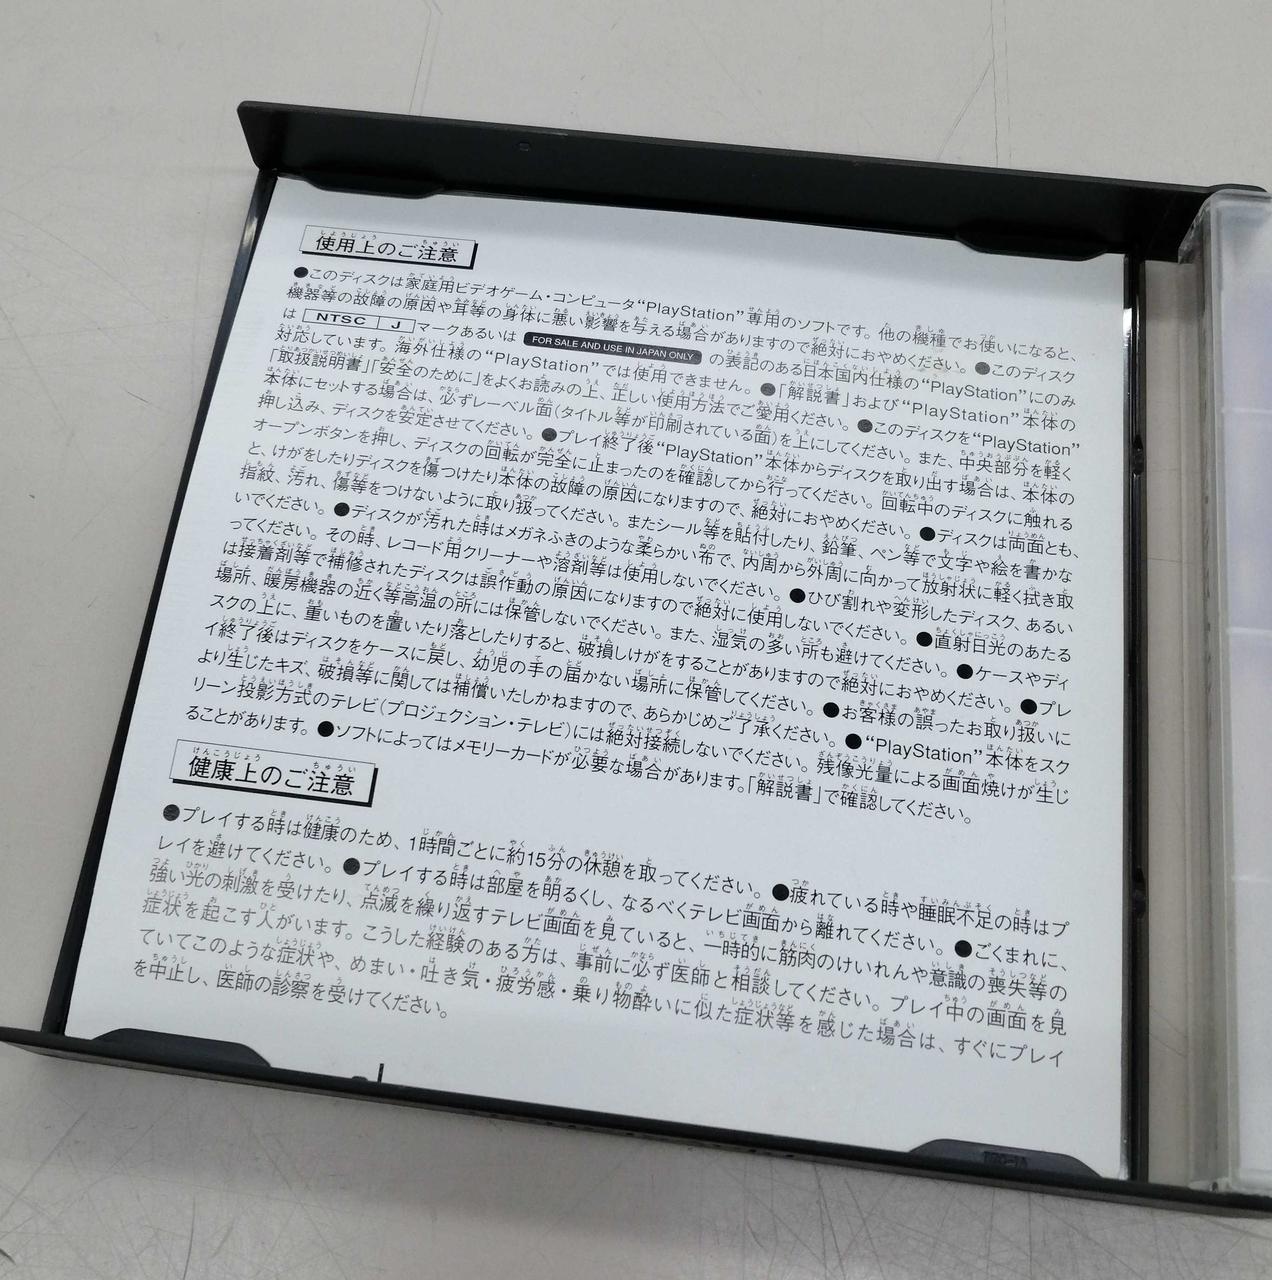 使用上のご注意
●このディスクは家庭用ビデオゲーム・コンピュータ“PlayStation”専用のソフトです。他の機種でお使いになると、
機器等の故障の原因や耳等の身体に悪い影響を与える場合がありますので絶対におやめください。●このディスク
は NTSC J マークあるいは FOR SALE AND USE IN JAPAN ONLY の表記のある日本国内仕様の“PlayStation”にのみ
対応しています。海外仕様の“PlayStation”では使用できません。●「解説書」および“PlayStation”本体の
「取扱説明書」「安全のために」をよくお読みの上、正しい使用方法でご愛用ください。●このディスクを“PlayStation”
本体にセットする場合は、必ずレーベル面(タイトル等が印刷されている面)を上にしてください。また、中央部分を軽く
押し込み、ディスクを安定させてください。●プレイ終了後“PlayStation”本体からディスクを取り出す場合は、本体の
オープンボタンを押し、ディスクの回転が完全に止まったのを確認してから行ってください。回転中のディスクに触れる
と、けがをしたりディスクを傷つけたり本体の故障の原因になりますので、絶対におやめください。●ディスクは両面とも、
指紋、汚れ、傷等をつけないように取り扱ってください。またシール等を貼付したり、鉛筆、ペン等で文字や絵を書かな
いでください。●ディスクが汚れた時はメガネふきのような柔らかい布で、内周から外周に向かって放射状に軽く拭き取
ってください。その時、レコード用クリーナーや溶剤等は使用しないでください。●ひび割れや変形したディスク、あるい
は接着剤等で補修されたディスクは誤作動の原因になりますので絶対に使用しないでください。●直射日光のあたる
場所、暖房機器の近く等高温の所には保管しないでください。また、湿気の多い所も避けてください。●ケースやディ
スクの上に、重いものを置いたり落としたりすると、破損しけがをすることがありますので絶対におやめください。●プレ
イ終了後はディスクをケースに戻し、幼児の手の届かない場所に保管してください。●お客様の誤ったお取り扱いに
より生じたキズ、破損等に関しては補償いたしかねますので、あらかじめご了承ください。●“PlayStation”本体をスク
リーン投影方式のテレビ(プロジェクション・テレビ)には絶対接続しないでください。残像光量による画面焼けが生じ
ることがあります。●ソフトによってはメモリーカードが必要な場合があります。「解説書」で確認してください。
健康上のご注意
●プレイする時は健康のため、1時間ごとに約15分の休憩を取ってください。●疲れている時や睡眠不足の時はプ
レイを避けてください。●プレイする時は部屋を明るくし、なるべくテレビ画面から離れてください。●ごくまれに、
強い光の刺激を受けたり、点滅を繰り返すテレビ画面を見ていると、一時的に筋肉のけいれんや意識の喪失等の
症状を起こす人がいます。こうした経験のある方は、事前に必ず医師と相談してください。プレイ中の画面を見
ていてこのような症状や、めまい・吐き気・疲労感・乗り物酔いに似た症状等を感じた場合は、すぐにプレイ
を中止し、医師の診察を受けてください。